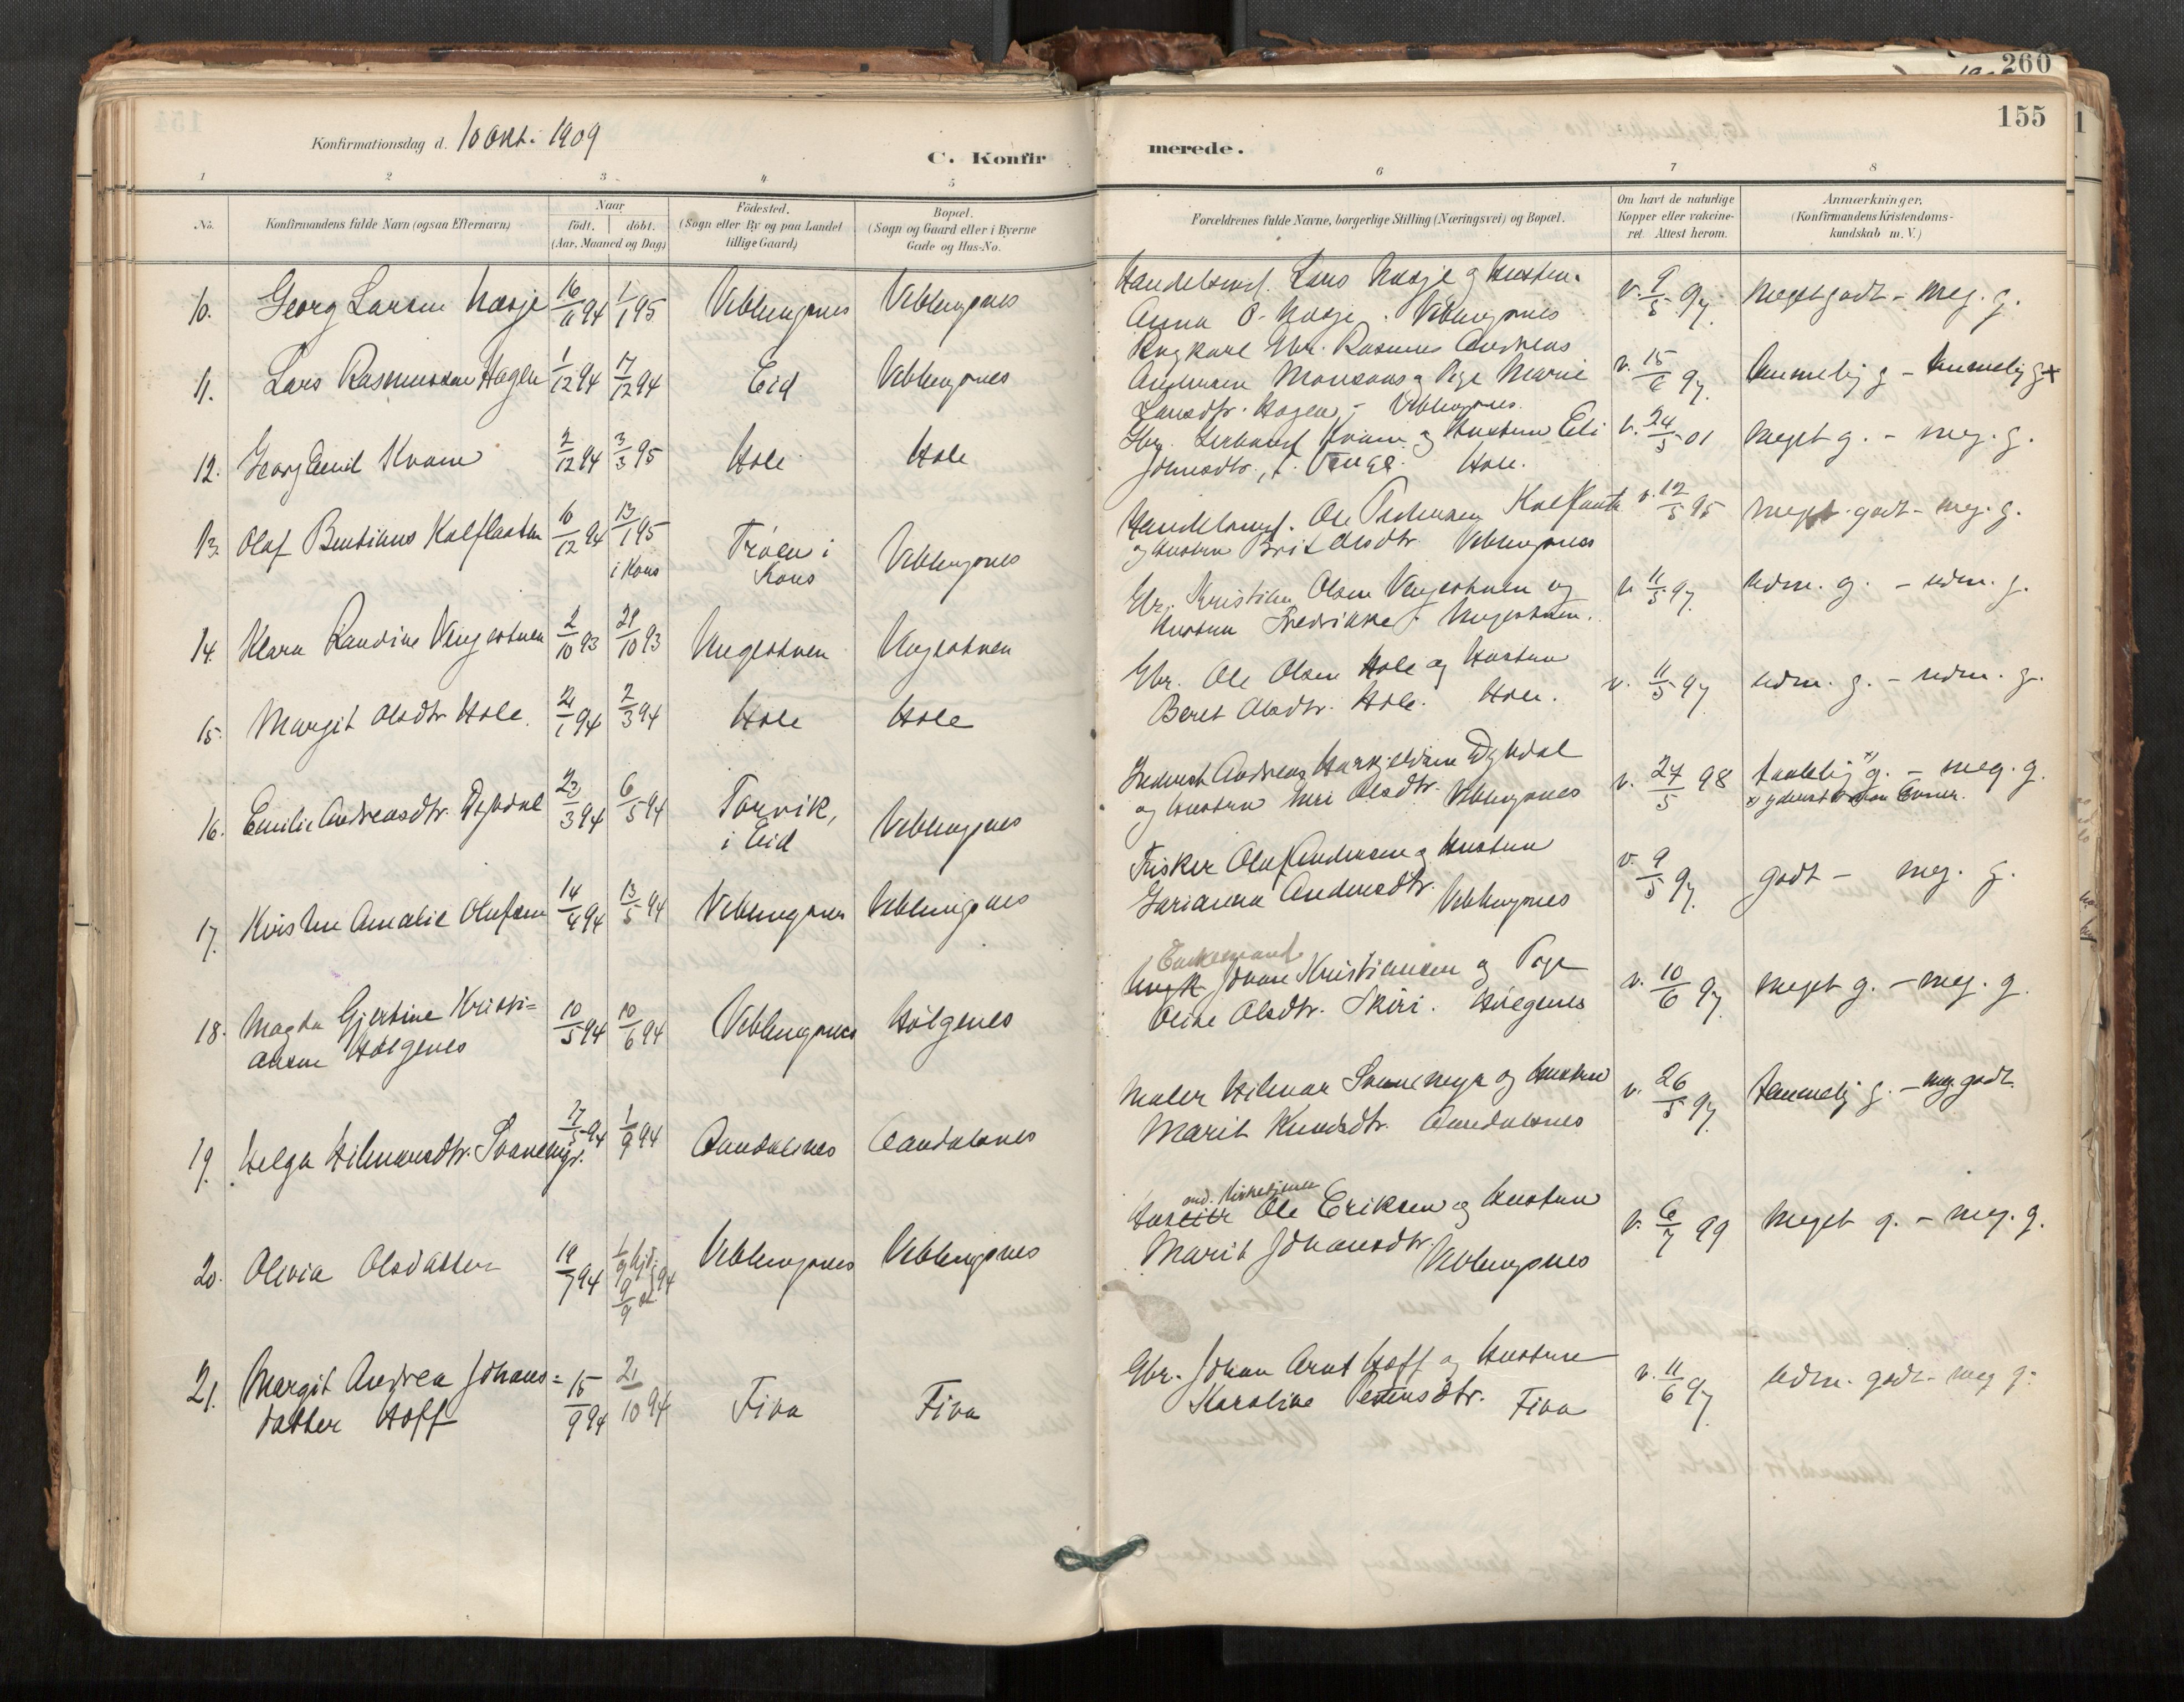 260
155
Konfirmationsdag d. 10 Okt. 1909
C. Konfirmerede.
1 2 3 4 5 6 7 8
No. Konfirmandens fulde Navn (ogsaa Efternavn) Naar født. døbt. (Aar, Maaned og Dag) Fødested. (Sogn eller By og paa Landet tillige Gaard) Bopæl. (Sogn og Gaard eller i Byerne Gade og Hus-No. Forældrenes fulde Navne, borgerlige Stilling (Næringsvei) og Bopæl. Om havt de naturlige Kopper eller vakcineret. Attest herom. Anmærkninger. (Konfirmandens Kristendomskundskab m. V.)
10. Georg Larsen Næsje 16/11 94 1/1 95 Veblungsnes Veblungsnes Handelsmd. Lars Næsje og Hustru
Anna O. Næsje. Veblungsnes v. 9/5 97. Meget godt - meg. g.
11. Lars Rasmussen Hagen 1/12 94 17/12 94 Eid Veblungsnes Ungkarl Gbr. Rasmus Andreas
Andersen Monsaas og Pige Marie
Larsdtr. Hagen, - Veblungsnes. v. 15/6 97. Temmelig g. - temmelig g. x
12. Georg Emil Kvam 2/12 94 3/3 95 Hole Hole Gbr. Kvam og Hustru Eli
Johnsdtr., f. Venge. Hole. v. 24/5 01 Meget g. - meg. g.
13. Olaf Bentinus Kalflaaten 10/12 94 13/1 95 i Kors Trøen i Kors Veblungsnes Handelsmd. Ole Pedersen
og Hustru Brit Olsdtr. Veblungsnes v. 12/5 95 meget godt - meg. g.
14. Klara Randine Vengestuen 2/10 93 29/10 93 Vengestuen Vengestuen Gbr. Kristian Olsen Vengestuen og
Hustru Fredrikke f. Vengestuen. v. 11/5 97. Udm. g. - udm. g.
15. Margit Olsdtr. Hole. 21/1 94 2/3 94 Hole Hole Gbr. Ole Olsen Hole og Hustru
Beret Olsdtr. Hole. Hole. v. 11/5 97 udm. g. - udm. g.
16. Emilie Andreasdtr. Dybdal 23/3 94 6/5 94 Torvik, i Eid Veblungsnes Andreas Dybdal
og Hustru Olsdtr. Veblungsnes v. 27/5 98 taalelig x) g. - meg. g.
x) yderst Evner.
17. Kristine Amalie Olufsen 14/4 94 13/5 94 Veblungsnes Veblungsnes Fisker Oluf Andersen og Hustru
Andersdtr. Veblungsnes v. 9/5 97. godt - meg. g.
18. Magda Gjertine Kristi=
ansen Hølgenes 10/5 94 10/6 94 Veblungsnes Hølgenes Enkemand
Ungk Johan Kristiansen og Pige
Oline Olsdtr. Skiri. Hølgenes v. 10/6 97. Meget g. - meg. g.
19. Helga Hilmarsdtr. Svanemyr. 27/5 94 1/9 94 Aandalsnes Aandalsnes Maler Hilmar Svanemyr og Hustru
Marit Knudsdtr. Aandalsnes v. 26/5 97. temmelig g. - meg. godt.
20. Olivia Olsdatter 19/7 94 1/9 hjd. 9/9 94 Veblungsnes Veblungsnes Ole Eriksen og Hustru
Marit Johansdtr. Veblungsnes v. 6/7 99 Meget g. - meg. g.
21. Margit Andrea Johans=
datter Hoff 15/9 94 21/10 94 Fiva Fiva Gbr. Johan Arnt Hoff og Hustru
Karoline Petersdtr. Fiva v. 11/6 97. udm. godt - meg g.